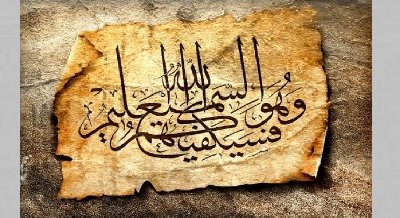 فَسَيَكْفِيكَهُمُ اللهُ
وَهُوَ السَّمِيعُ الْعَلِيمُ